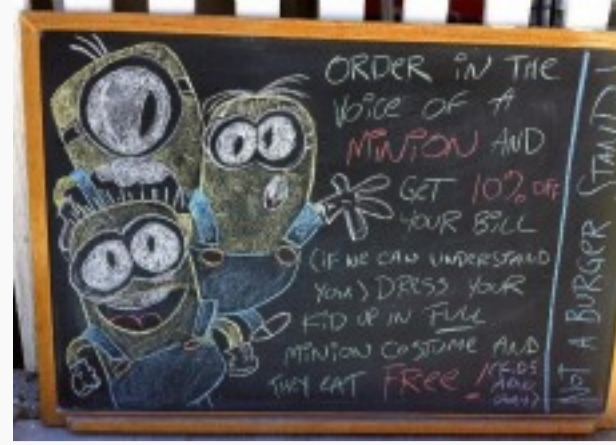 ORDER IN THE
VOICE OF A
MINION AND
GET 10% OFF
YOUR BILL
(IF WE CAN UNDERSTAND
YOU) DRESS YOUR
KID UP IN FULL
MINION COSTUME AND
THEY EAT FREE!
NOT A BURGER STAND!